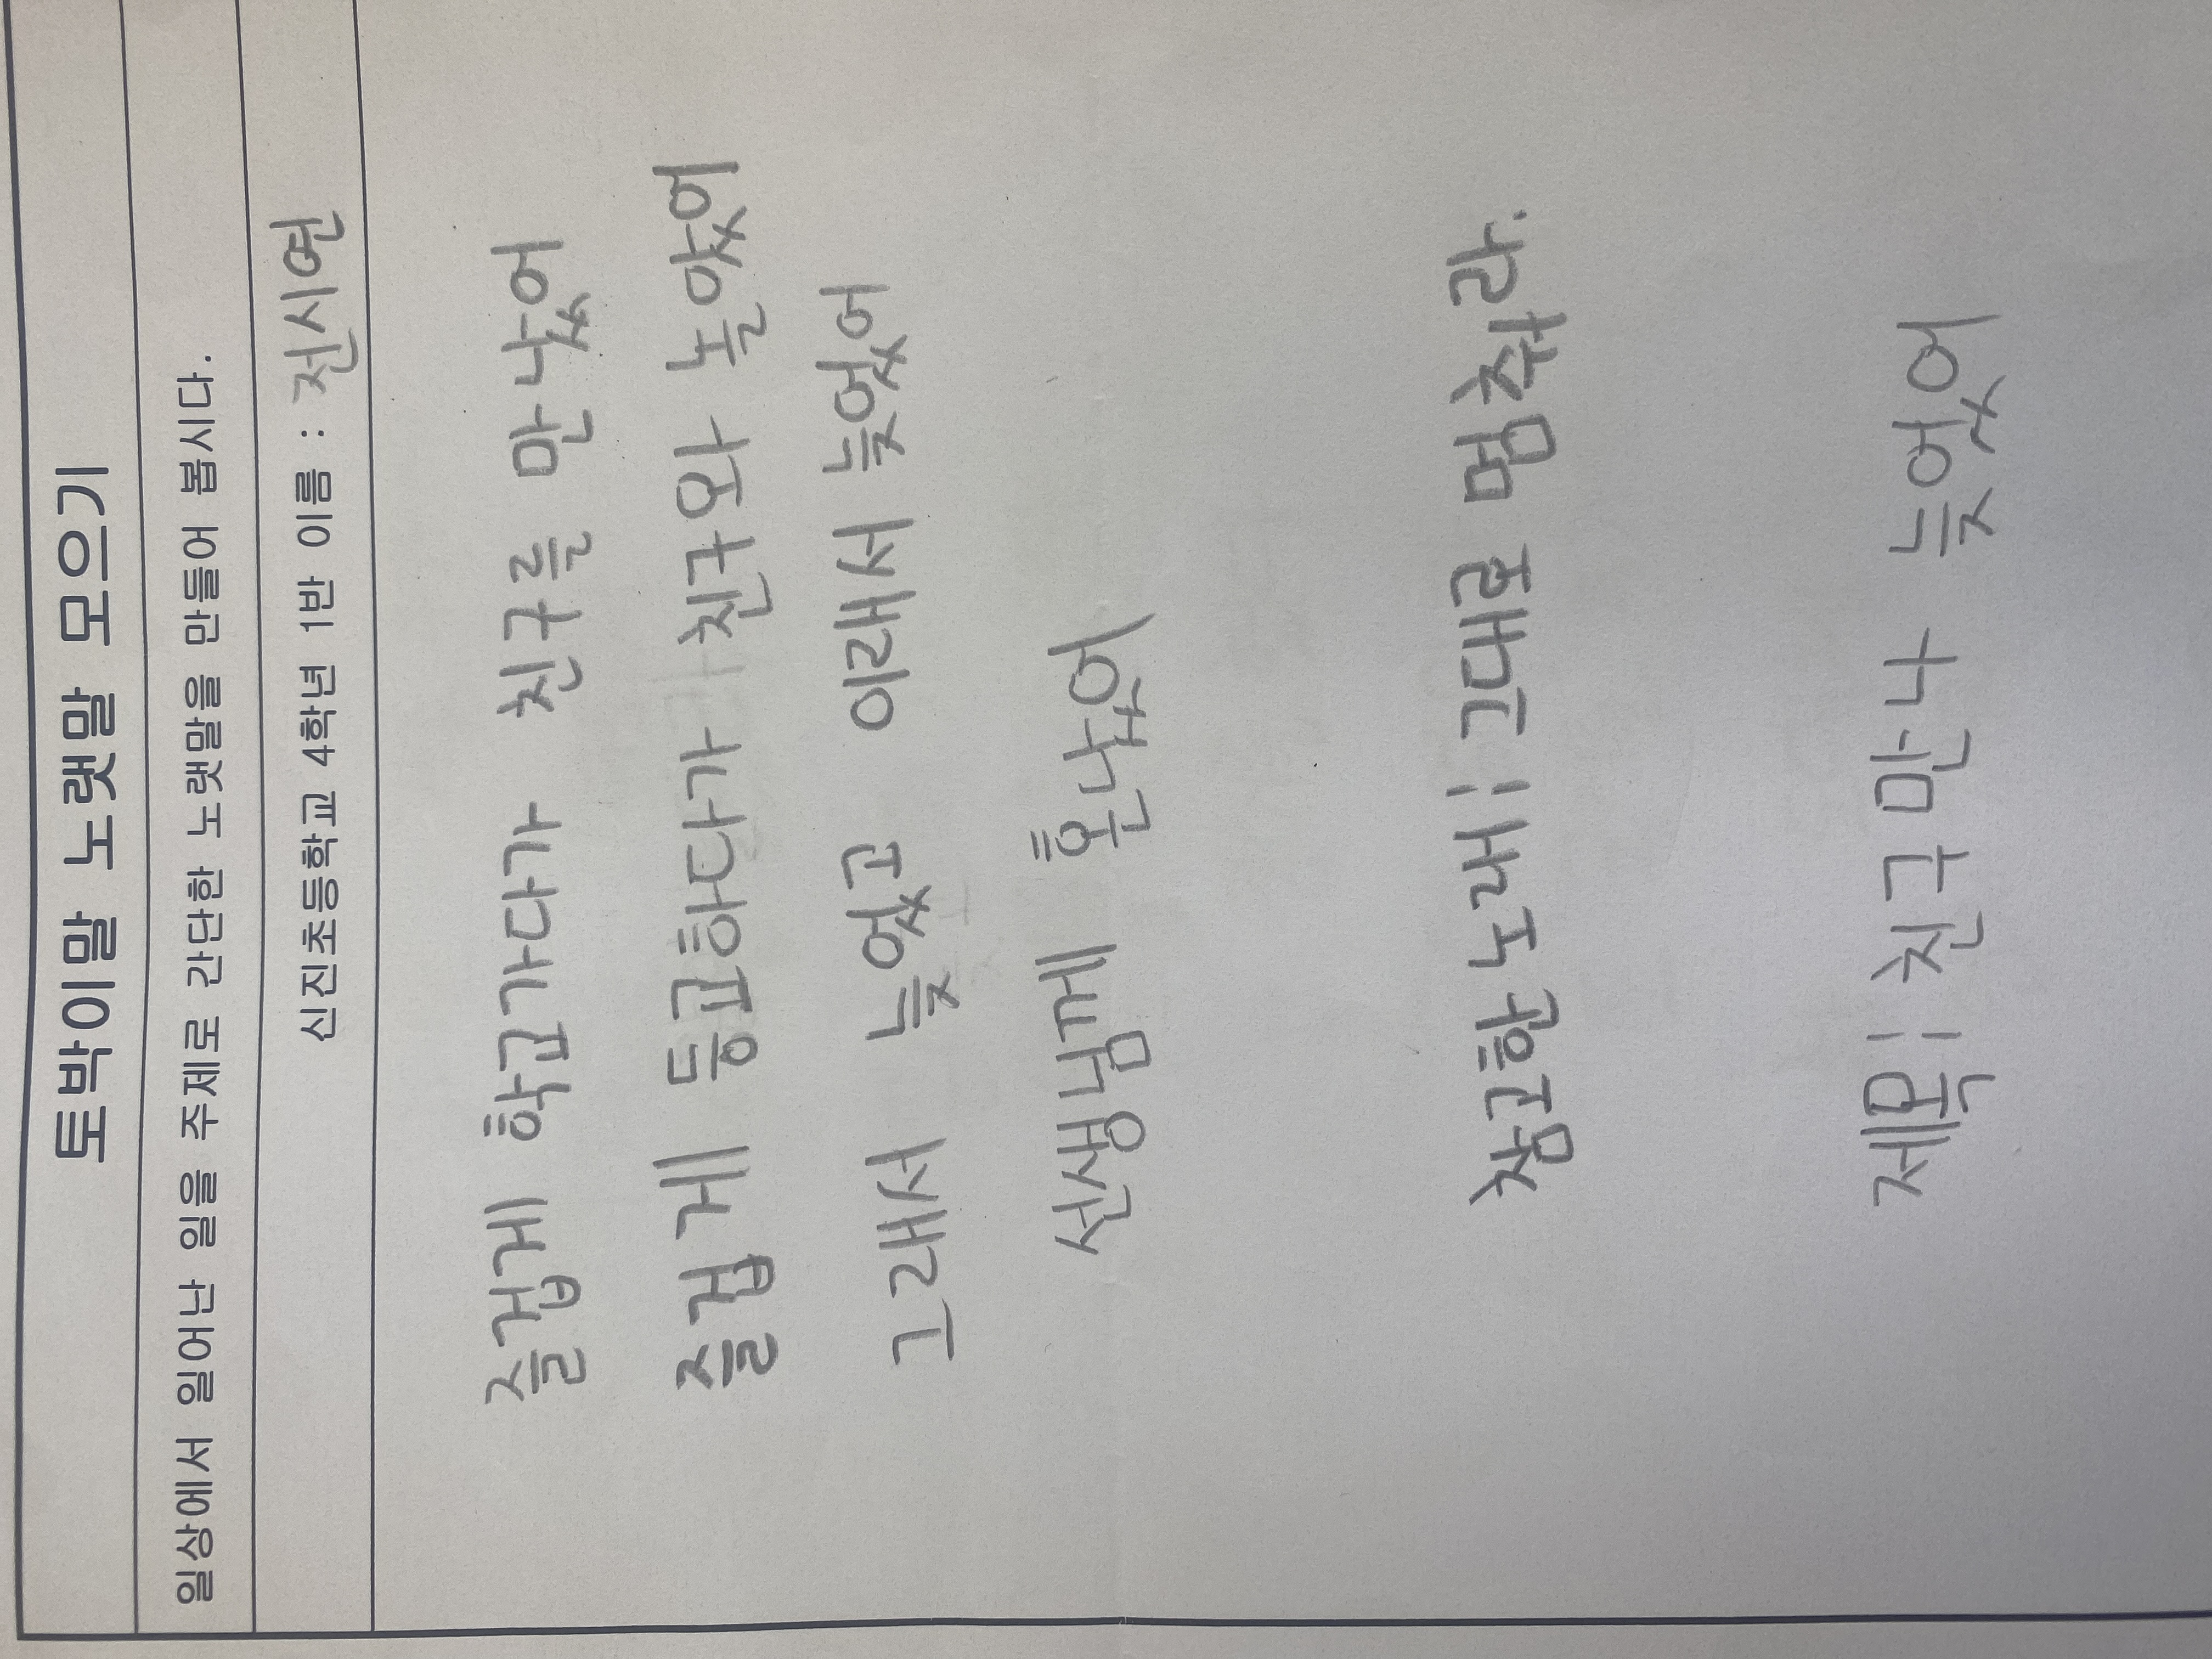 토박이말 노랫말 모으기
일상에서 일어난 일을 주제로 간단한 노랫말을 만들어 봅시다.
신진초등학교 4학년 1반 이름 : 전시연
즐겁게 학교가다가 친구를 만났어
즐겁게 등교하다가 친구와 놀았어
그래서 늦었고 이래서 늦었어
선생님께 혼났어
참고한 노래: 그대로 멈춰라.
제목: 친구만나 늦었어